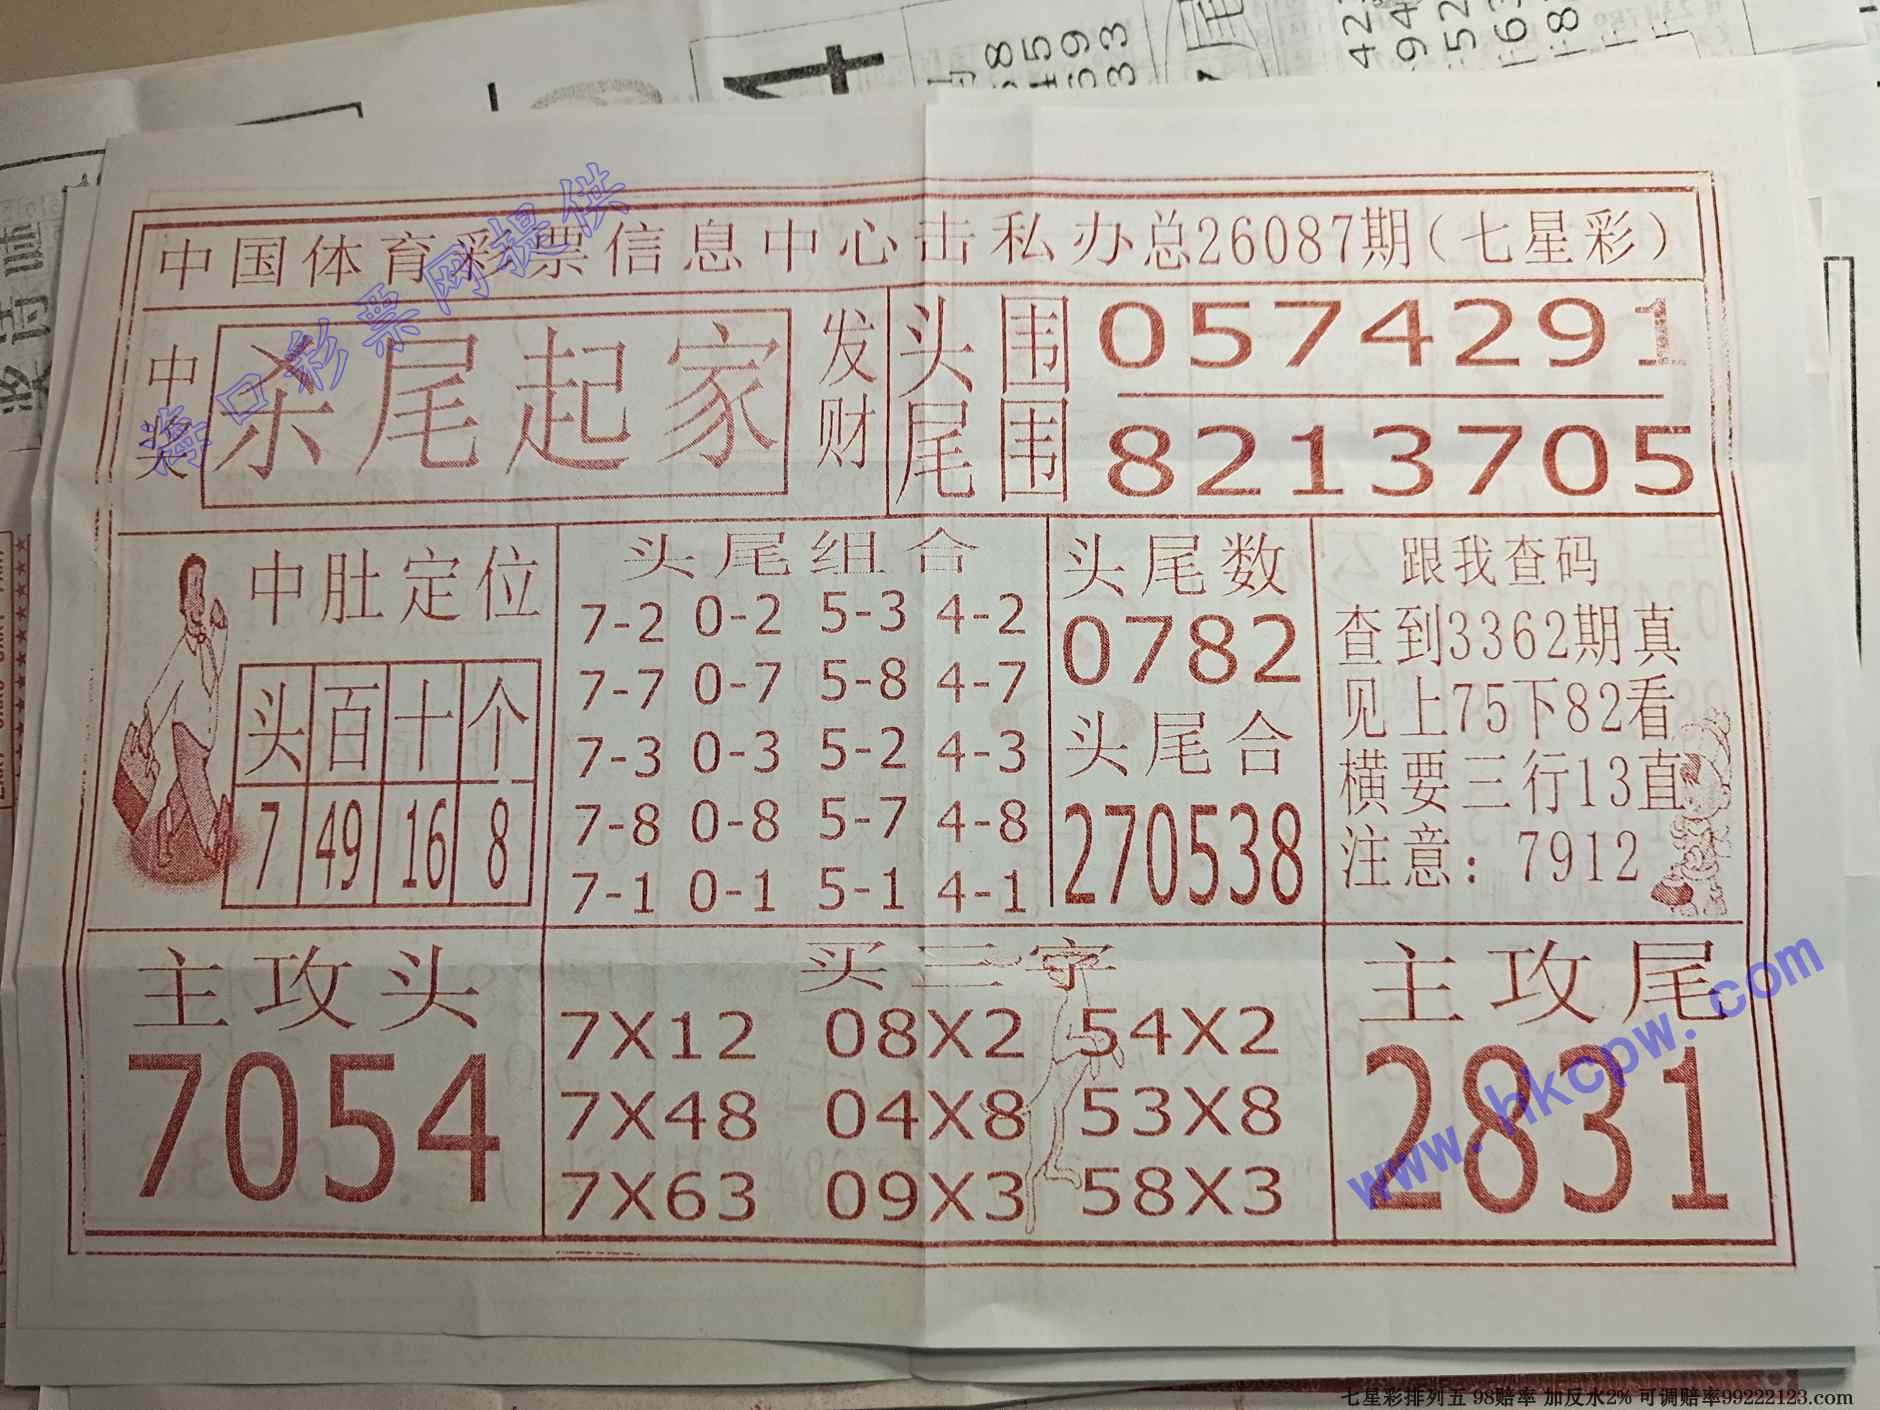 中国体育彩票信息中心击私办总26087期(七星彩)
海口彩票网提供
中奖
杀尾起家
发财
头围 0574291
尾围 8213705
中肚定位
头 百 十 个
7 49 16 8
头尾组合
7-2 0-2 5-3 4-2
7-7 0-7 5-8 4-7
7-3 0-3 5-2 4-3
7-8 0-8 5-7 4-8
7-1 0-1 5-1 4-1
头尾数
0782
头尾合
270538
跟我查码
查到3362期真
见上75下82看
横要三行13直
注意：7912
主攻头
7054
买三字
7X12 08X2 54X2
7X48 04X8 53X8
7X63 09X3 58X3
主攻尾
2831
www.hkcpw.com
七星彩排列五 98赔率 加反水2% 可调赔率99222123.com